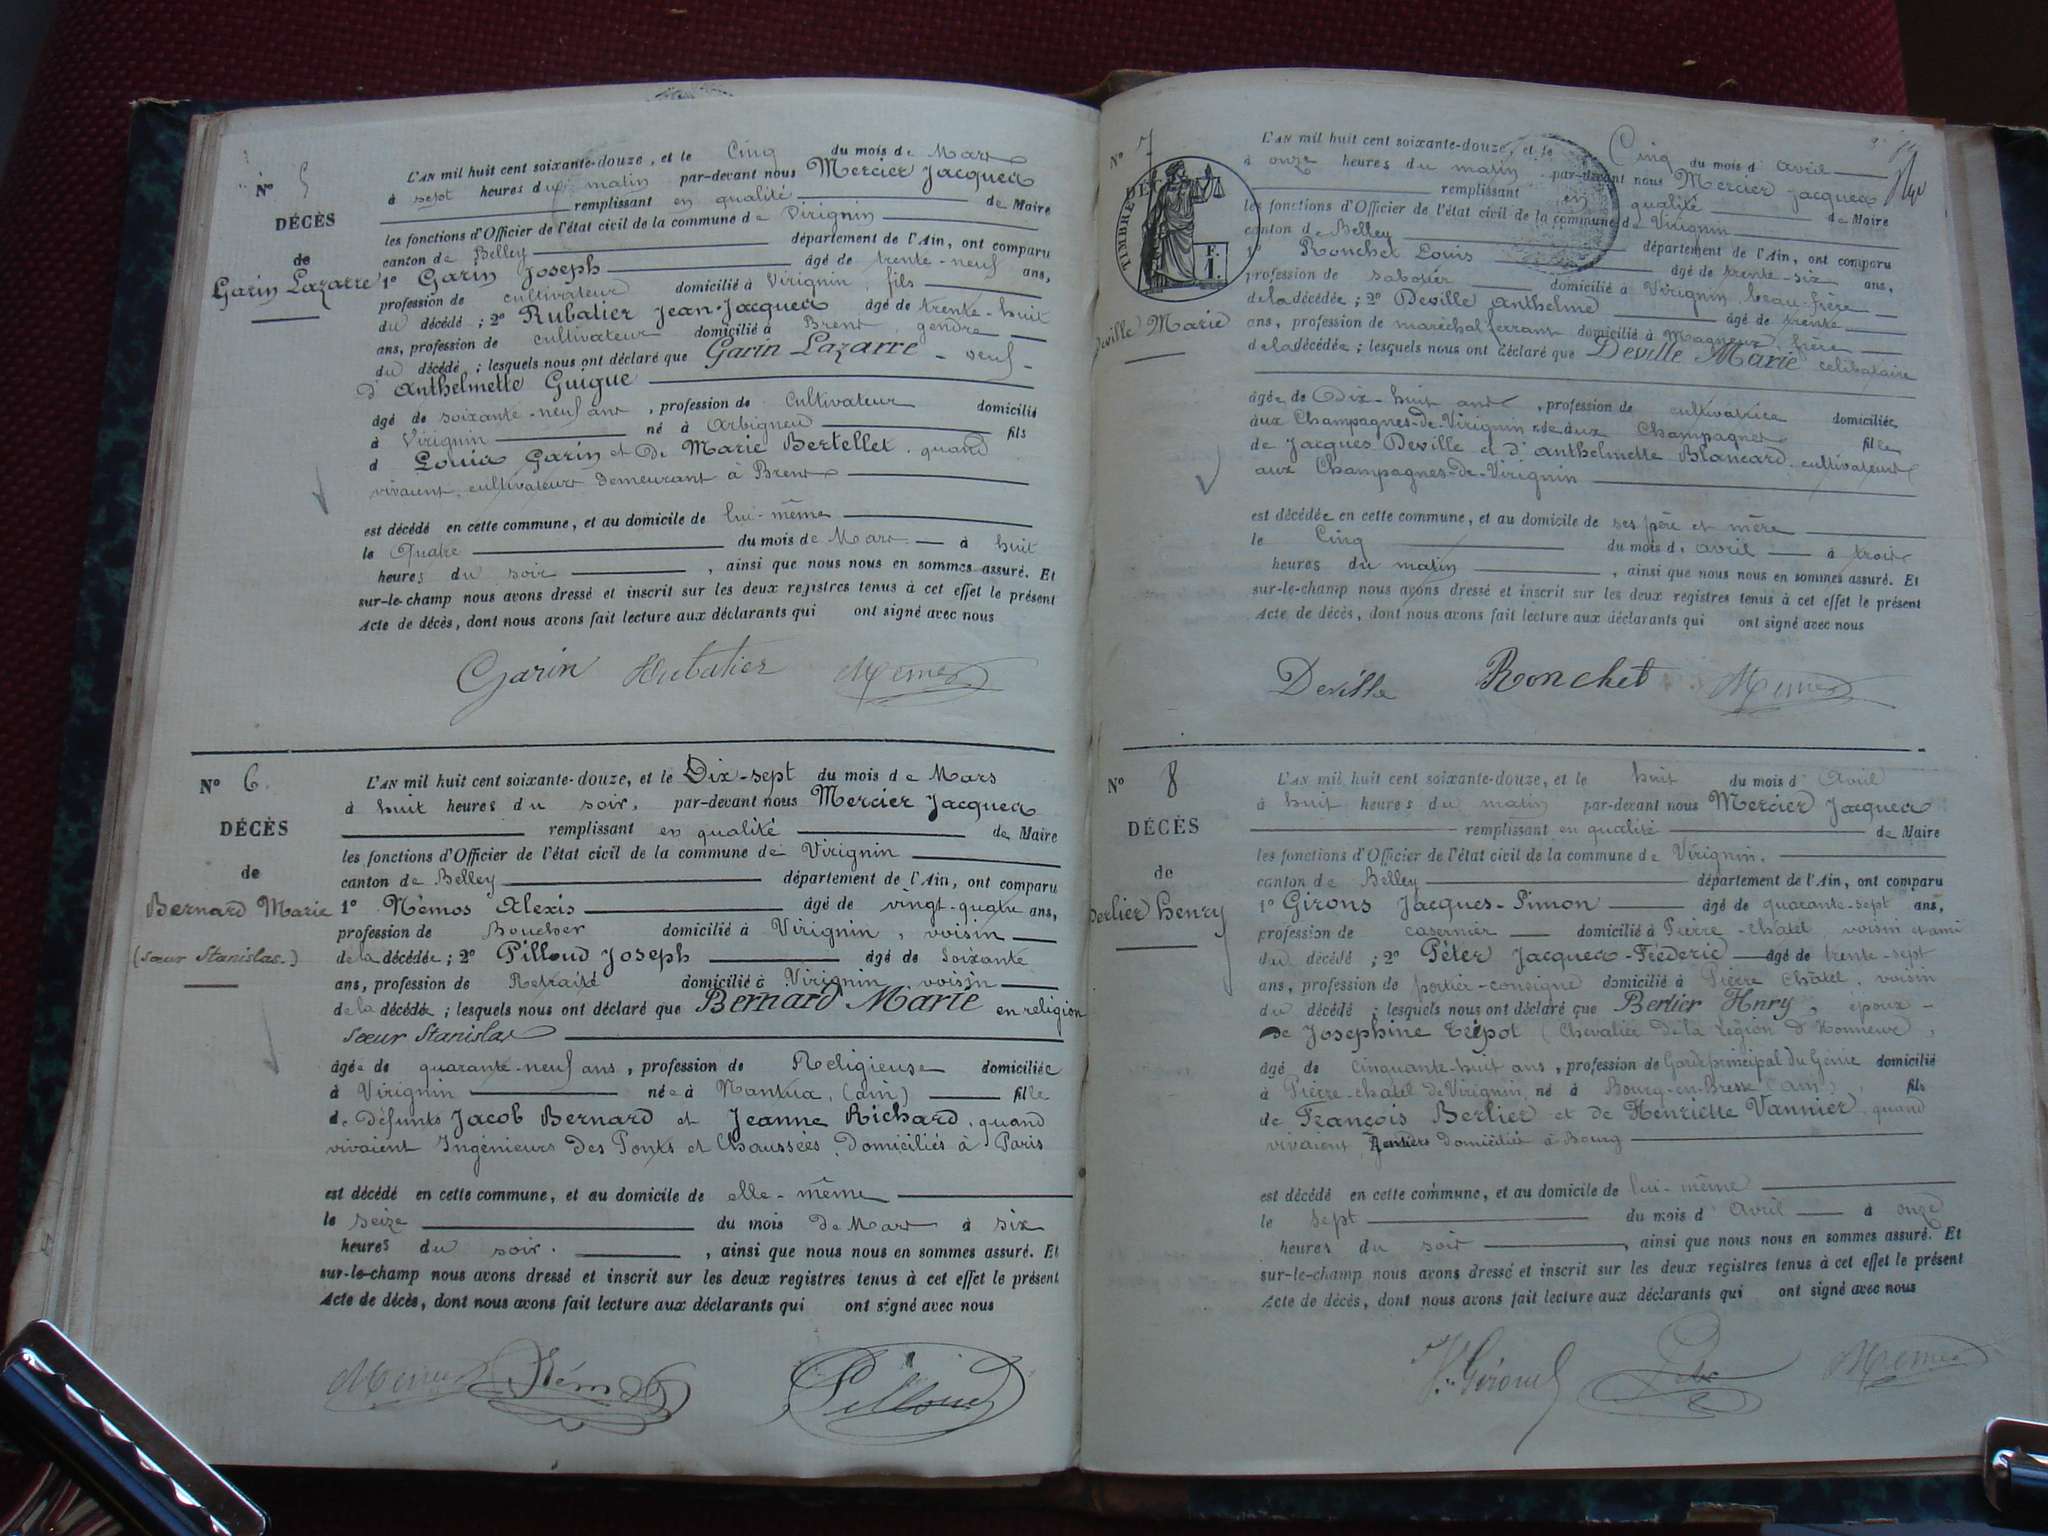 N° 5
DÉCÈS
de
Garin Lazarre
L'AN mil huit cent soixante-douze, et le Cinq du mois de Mars
à sept heures du matin par-devant nous Mercier Jacques
remplissant en qualité de Maire
les fonctions d'Officier de l'état civil de la commune de Virignin
canton de Belley département de l'Ain, ont comparu
1° Garin Joseph âgé de trente-neuf ans,
profession de cultivateur domicilié à Virignin, fils
du décédé ; 2° Rubatier Jean-Jacques âgé de trente-huit
ans, profession de cultivateur domicilié à Brens, gendre
du décédé ; lesquels nous ont déclaré que Garin Lazarre veuf
d'Anthelmette Guigue
âgé de soixante-neuf ans, profession de Cultivateur domicilié
à Virignin né à Arbigneu fils
d Louis Garin et de Marie Bertellet, quand
vivaient, cultivateurs demeurant à Brens
est décédé en cette commune, et au domicile de lui-même
le Quatre du mois de Mars à huit
heures du soir, ainsi que nous nous en sommes assuré. Et
sur-le-champ nous avons dressé et inscrit sur les deux registres tenus à cet effet le présent
Acte de décès, dont nous avons fait lecture aux déclarants qui ont signé avec nous
Garin Rubatier Mercier
N° 6.
DÉCÈS
de
Bernard Marie
(sœur Stanislas.)
L'AN mil huit cent soixante-douze, et le Dix-sept du mois de Mars
à huit heures du soir, par-devant nous Mercier Jacques
remplissant en qualité de Maire
les fonctions d'Officier de l'état civil de la commune de Virignin
canton de Belley département de l'Ain, ont comparu
1° Némos Alexis âgé de vingt-quatre ans,
profession de Boucher domicilié à Virignin, voisin
de la décédée ; 2° Pilloud Joseph âgé de soixante
ans, profession de Retraité domicilié à Virignin, voisin
de la décédée ; lesquels nous ont déclaré que Bernard Marie en religion
Sœur Stanislas
âgée de quarante-neuf ans, profession de Religieuse domiciliée
à Virignin née à Nantua, (ain) fille
de défunts Jacob Bernard et Jeanne Richard, quand
vivaient Ingénieurs des Ponts et Chaussées, domiciliés à Paris
est décédé en cette commune, et au domicile de elle-même
le seize du mois de Mars à six
heures du soir, ainsi que nous nous en sommes assuré. Et
sur-le-champ nous avons dressé et inscrit sur les deux registres tenus à cet effet le présent
Acte de décès, dont nous avons fait lecture aux déclarants qui ont signé avec nous
Mercier Némos Pilloud
N° 7
TIMBRE
1 F.
Deville Marie
L'AN mil huit cent soixante-douze, et le Cinq du mois d'avril
à onze heures du matin par-devant nous Mercier Jacques
remplissant en qualité de Maire
les fonctions d'Officier de l'état civil de la commune de Virignin
canton de Belley département de l'Ain, ont comparu
1° Ronchet Louis âgé de trente-six ans,
profession de sabotier domicilié à Virignin, beau-frère
de la décédée ; 2° Deville Anthelme âgé de trente
ans, profession de maréchal ferrant domicilié à Magnieu, frère
de la décédée ; lesquels nous ont déclaré que Deville Marie célibataire
âgée de Dix-huit ans, profession de cultivatrice domiciliée
aux Champagnes-de-Virignin née aux Champagnes fille
de Jacques Deville et d'anthelmette Blancard, cultivateurs
aux Champagnes-de-Virignin
est décédée en cette commune, et au domicile de ses père et mère
le Cinq du mois d'avril à trois
heures du matin, ainsi que nous nous en sommes assuré. Et
sur-le-champ nous avons dressé et inscrit sur les deux registres tenus à cet effet le présent
Acte de décès, dont nous avons fait lecture aux déclarants qui ont signé avec nous
Deville Ronchet Mercier
N° 8
DÉCÈS
de
Berlier henry
L'AN mil huit cent soixante-douze, et le huit du mois d'Avril
à huit heures du matin par-devant nous Mercier Jacques
remplissant en qualité de Maire
les fonctions d'Officier de l'état civil de la commune de Virignin.
canton de Belley département de l'Ain, ont comparu
1° Girons Jacques-Simon âgé de quarante-sept ans,
profession de casernier domicilié à Pierre-chatel, voisin et ami
du décédé ; 2° Péter Jacques-Fréderic âgé de trente-sept
ans, profession de portier-consigne domicilié à Pierre Châtel, voisin
du décédé ; lesquels nous ont déclaré que Berlier Hnry, époux
de Josephine Tripot (Chevalier de la Légion d'Honneur,
âgé de Cinquante-huit ans, profession de Garde principal du Génie domicilié
à Pierre-chatel de Virignin, né à Bourg-en-Bresse (ain) fils
de François Berlier et de Henriette Vannier, quand
vivaient, Rentiers domiciliés à Bourg
est décédé en cette commune, et au domicile de lui-même
le sept du mois d'Avril à onze
heures du soir, ainsi que nous nous en sommes assuré. Et
sur-le-champ nous avons dressé et inscrit sur les deux registres tenus à cet effet le présent
Acte de décès, dont nous avons fait lecture aux déclarants qui ont signé avec nous
Mercier